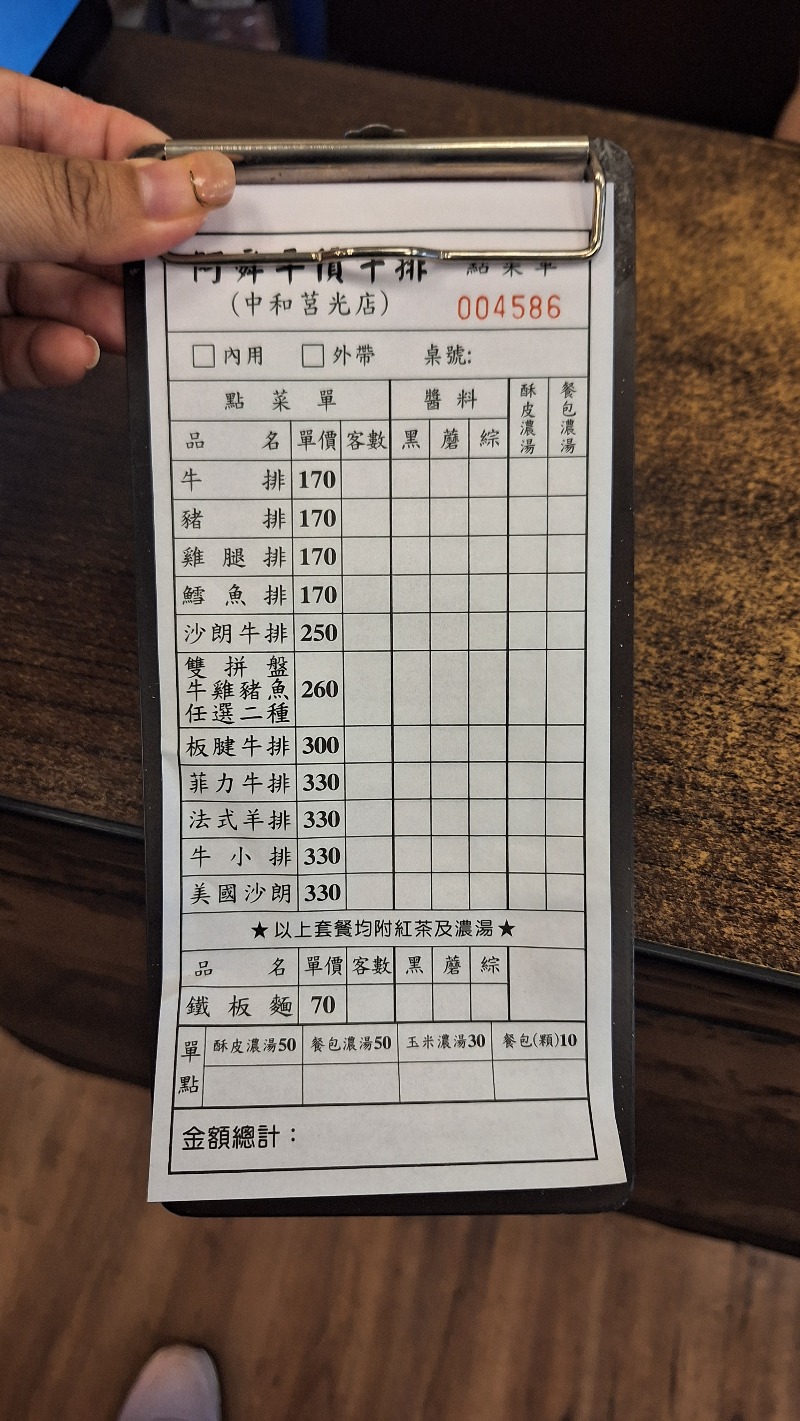 阿舜平價牛排 點菜單
(中和莒光店) 004586
□內用 □外帶 桌號:
點菜單 醬料 酥皮濃湯 餐包濃湯
品名 單價 客數 黑 蘑 綜
牛排 170
豬排 170
雞腿排 170
鱈魚排 170
沙朗牛排 250
雙拼盤
牛雞豬魚 260
任選二種
板腱牛排 300
菲力牛排 330
法式羊排 330
牛小排 330
美國沙朗 330
★以上套餐均附紅茶及濃湯★
品名 單價 客數 黑 蘑 綜
鐵板麵 70
單點 酥皮濃湯50 餐包濃湯50 玉米濃湯30 餐包(顆)10
金額總計：